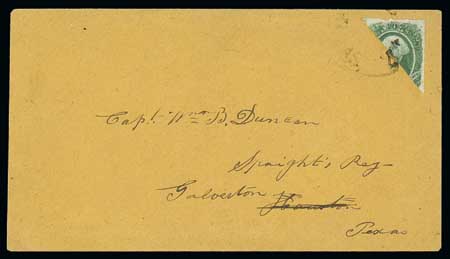 Capt. Wm B. Duncan
Spaight's Reg
Galveston Houston
Texas